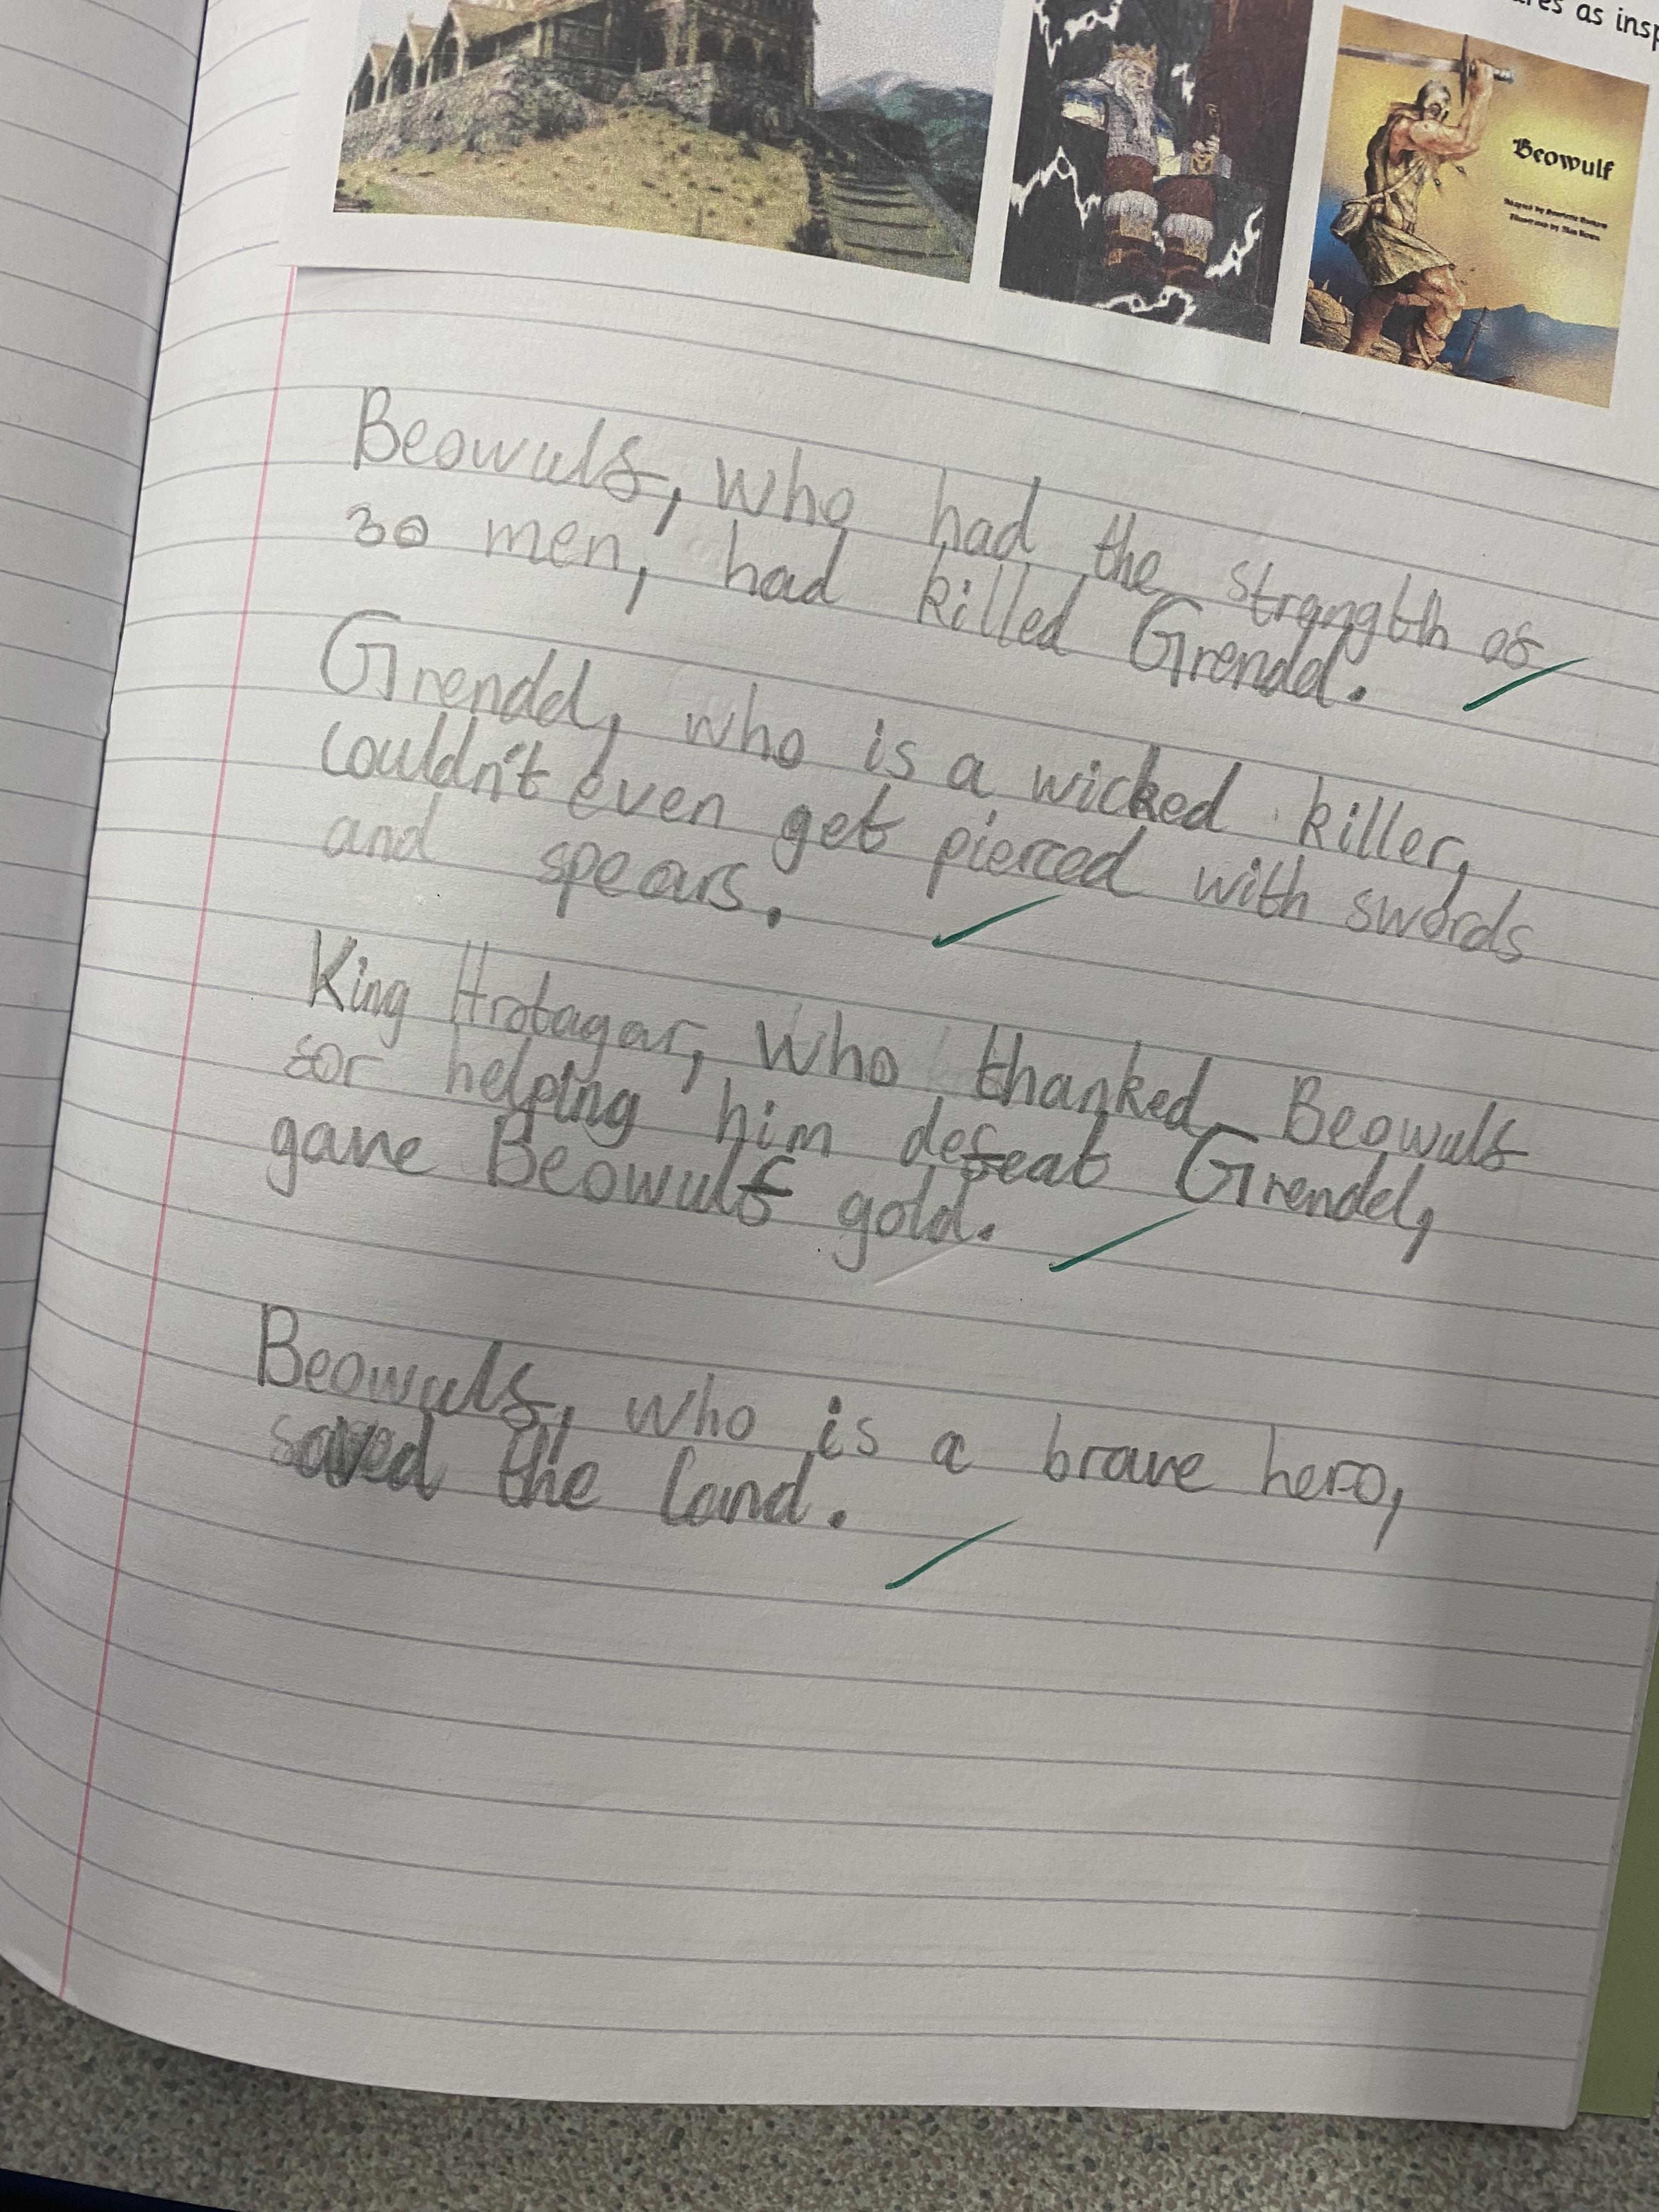 as insp
Beowulf
Beowulf, who had the strength of
30 men, had killed Grendel.
Grendel, who is a wicked killer,
couldn't even get pierced with swords
and spears.
King Hrotagar, who thanked Beowulf
for helping him defeat Grendel,
gave Beowulf gold.
Beowulf, who is a brave hero,
saved the land.